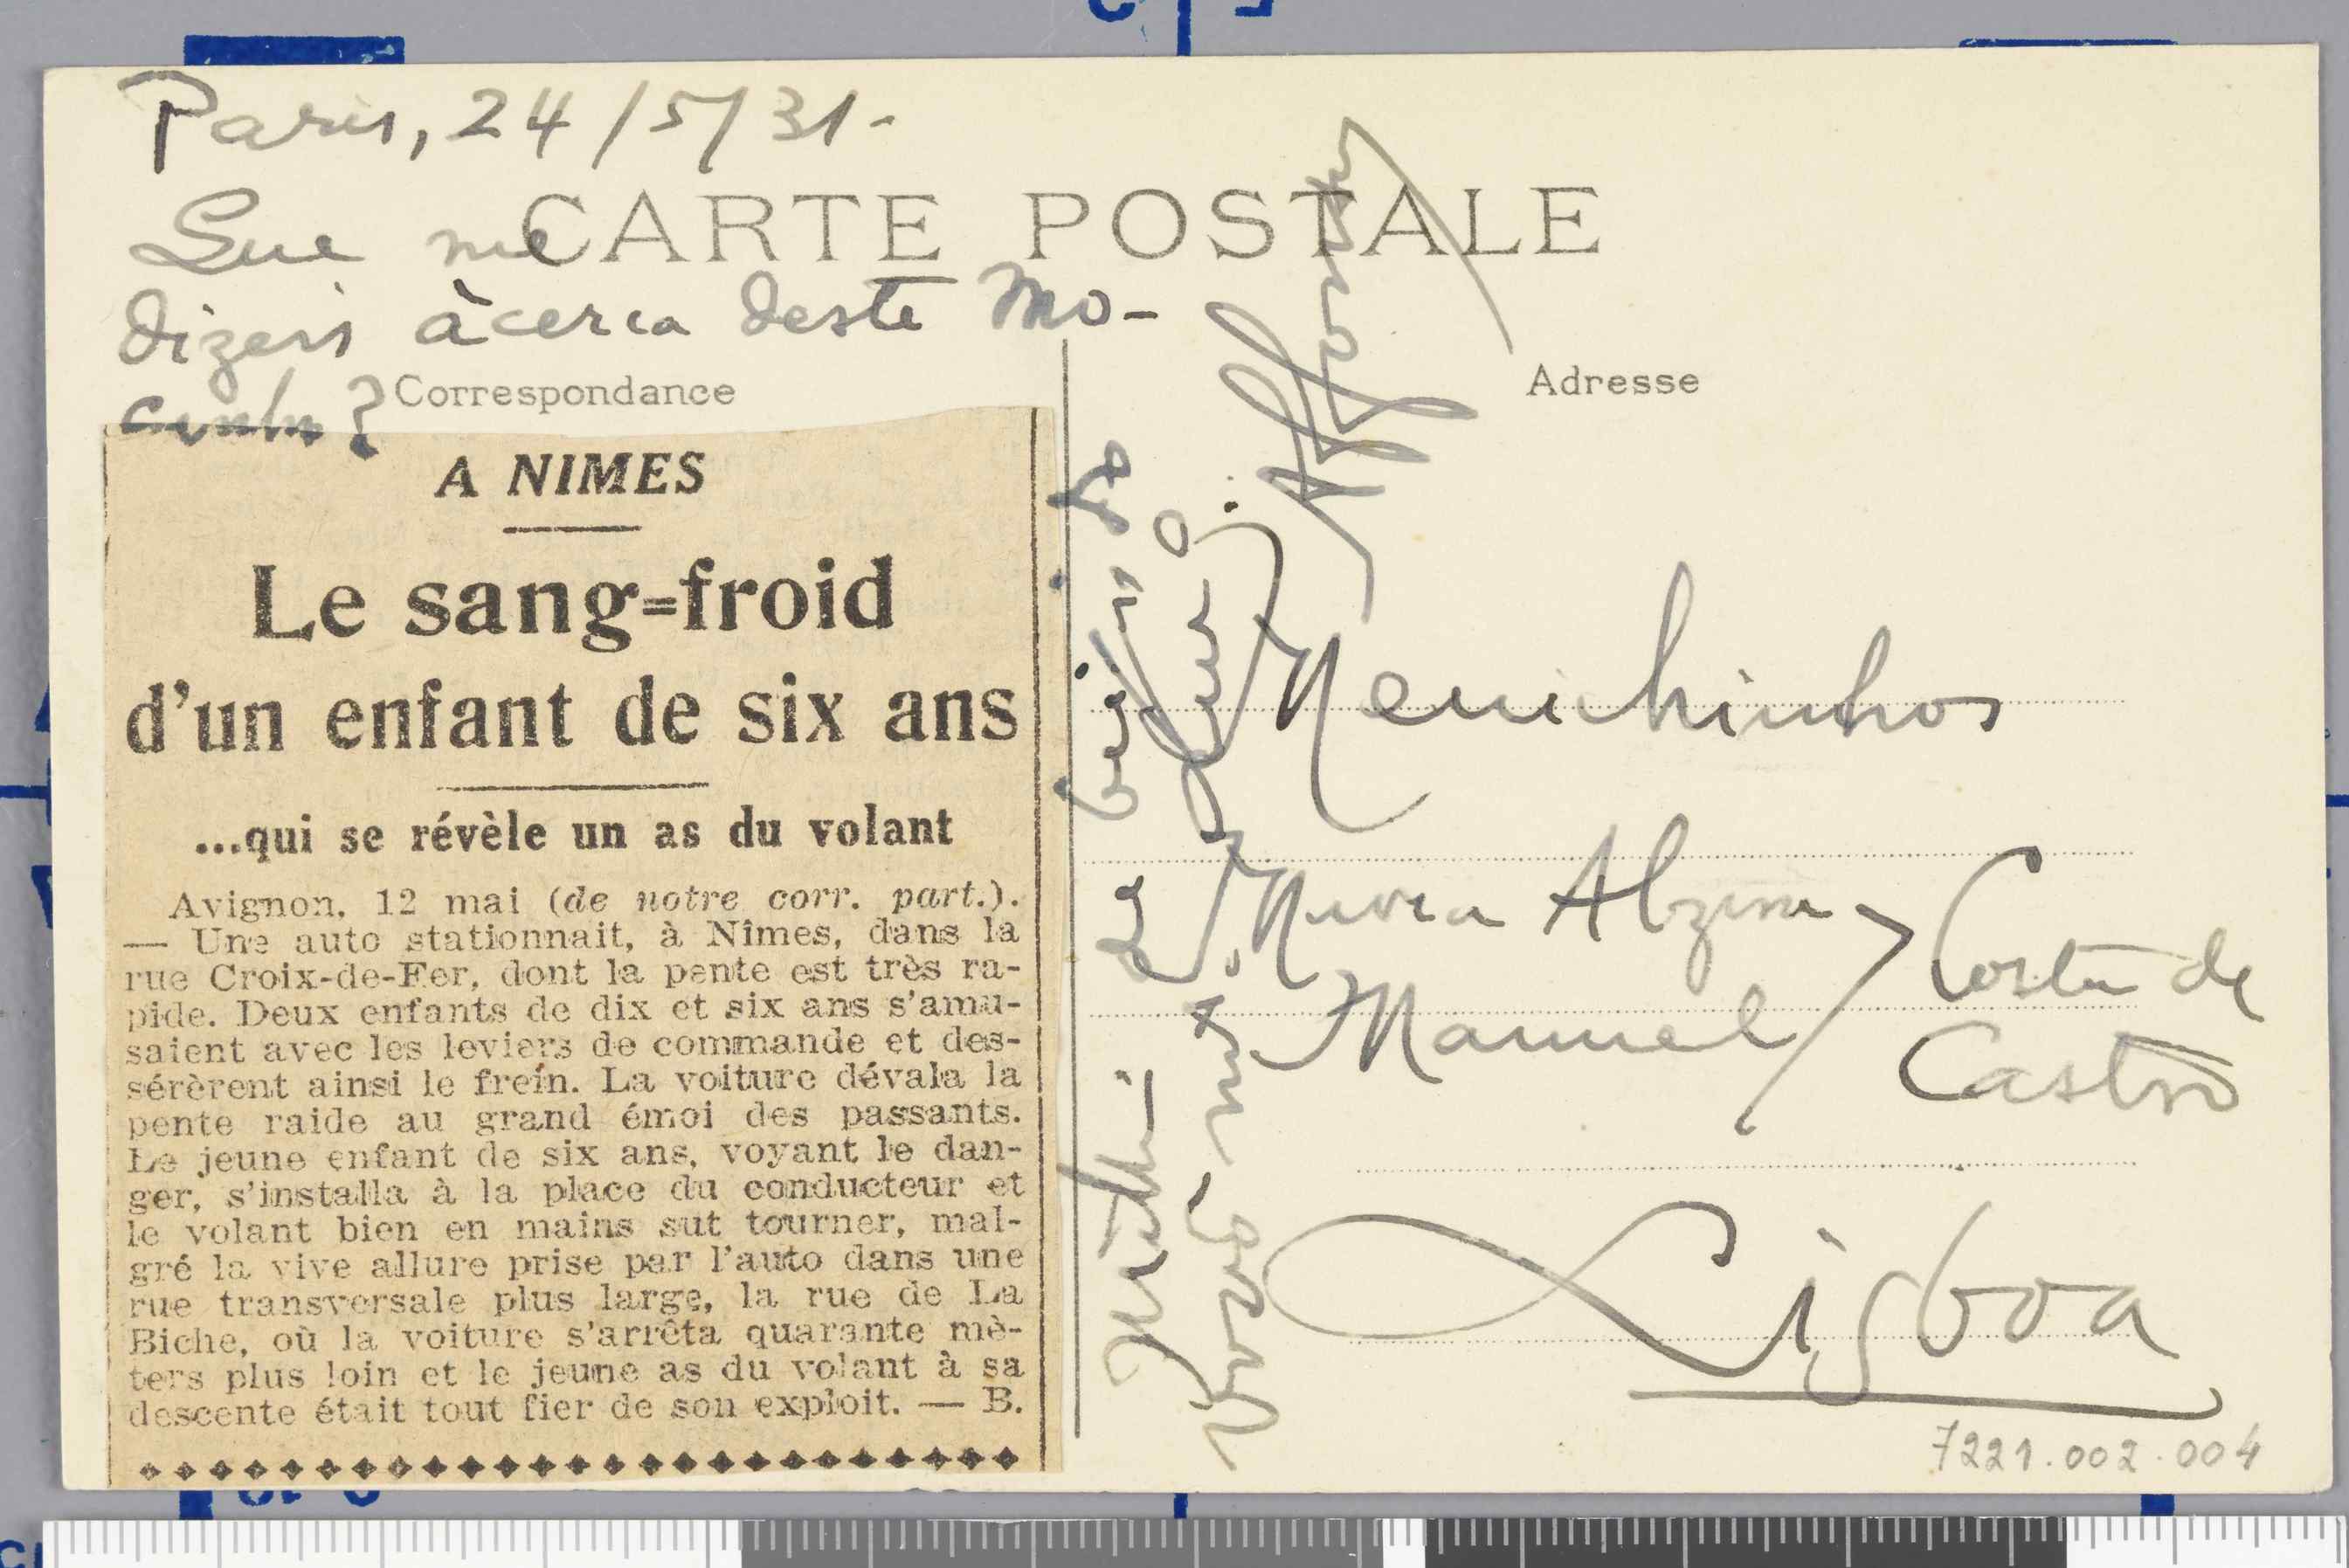 Paris, 24/5/31-
CARTE POSTALE
Que me
dizeis àcerca deste mo-
cinho?
Correspondance
Adresse
A NIMES
Le sang=froid
d'un enfant de six ans
...qui se révèle un as du volant
Avignon, 12 mai (de notre corr. part.).
— Une auto stationnait, à Nîmes, dans la
rue Croix-de-Fer, dont la pente est très ra-
pide. Deux enfants de dix et six ans s'amu-
saient avec les leviers de commande et des-
sérèrent ainsi le frein. La voiture dévala la
pente raide au grand émoi des passants.
Le jeune enfant de six ans, voyant le dan-
ger, s'installa à la place du conducteur et
le volant bien en mains sut tourner, mal-
gré la vive allure prise par l'auto dans une
rue transversale plus large, la rue de La
Biche, où la voiture s'arrêta quarante mè-
ters plus loin et le jeune as du volant à sa
descente était tout fier de son exploit. — B.
beijos do
Vosso
Affonso
Menichinhos
Maria Alzira
Manuel
Costa de
Castro
Lisboa
7221.002.004